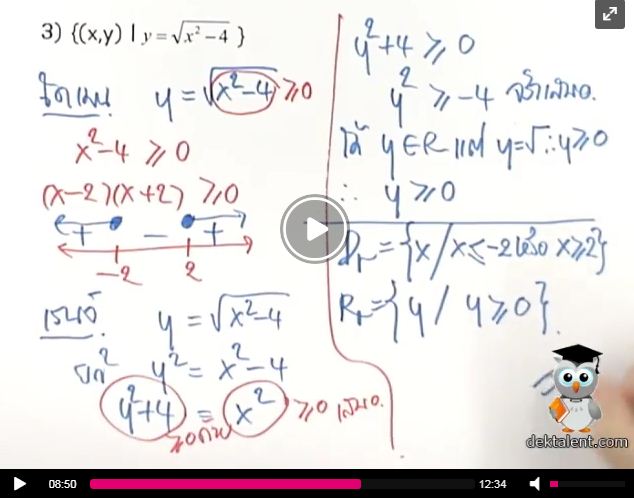 3) {(x,y) | y = √x² − 4 }
โดเมน y = √x²−4 ≥0
x²−4 ≥ 0
(x−2)(x+2) ≥0
+ − +
−2 2
เรนจ์ y = √x²−4
ยก² y² = x²−4
y²+4 = x² ≥0 เสมอ
≥0ด้วย
y²+4 ≥ 0
y² ≥ −4 จริงเสมอ.
ได้ y∈R แต่ y=√ ∴ y≥0
∴ y ≥ 0
Dr = {x / x ≤ −2 หรือ x ≥ 2}
Rr = {y / y ≥ 0}
dektalent.com
08:50 12:34